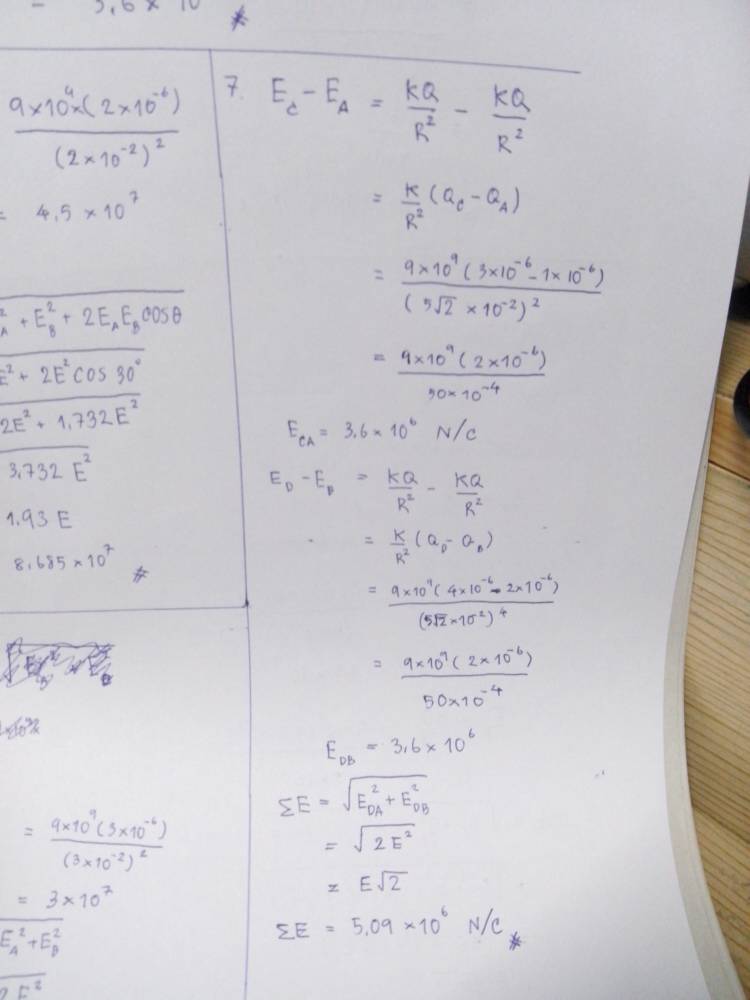 = 3,6 × 10
*
9×10⁹×(2×10⁻⁶)
(2×10⁻²)²
= 4,5 × 10⁷
²A + E²B + 2EAEB COSθ
E² + 2E² COS 30°
2E² + 1,732E²
3,732 E²
1.93 E
8,685×10⁷
*
= 9×10⁹(3×10⁻⁶)
(3×10⁻²)²
= 3×10⁷
EA² + EB²
2E²
7. EC − EA = KQ/R² − KQ/R²
= K/R² (QC − QA)
= 9×10⁹ (3×10⁻⁶ − 1×10⁻⁶)
(5√2 × 10⁻²)²
= 9×10⁹ (2×10⁻⁶)
50×10⁻⁴
ECA = 3,6×10⁶ N/C
ED − EB = KQ/R² − KQ/R²
= K/R² (QD − QB)
= 9×10⁹(4×10⁻⁶ − 2×10⁻⁶)
(5√2×10⁻²)⁴
= 9×10⁹(2×10⁻⁶)
50×10⁻⁴
EDB = 3,6×10⁶
ΣE = √EDA² + EDB²
= √2E²
= E√2
ΣE = 5,09 ×10⁶ N/C
*